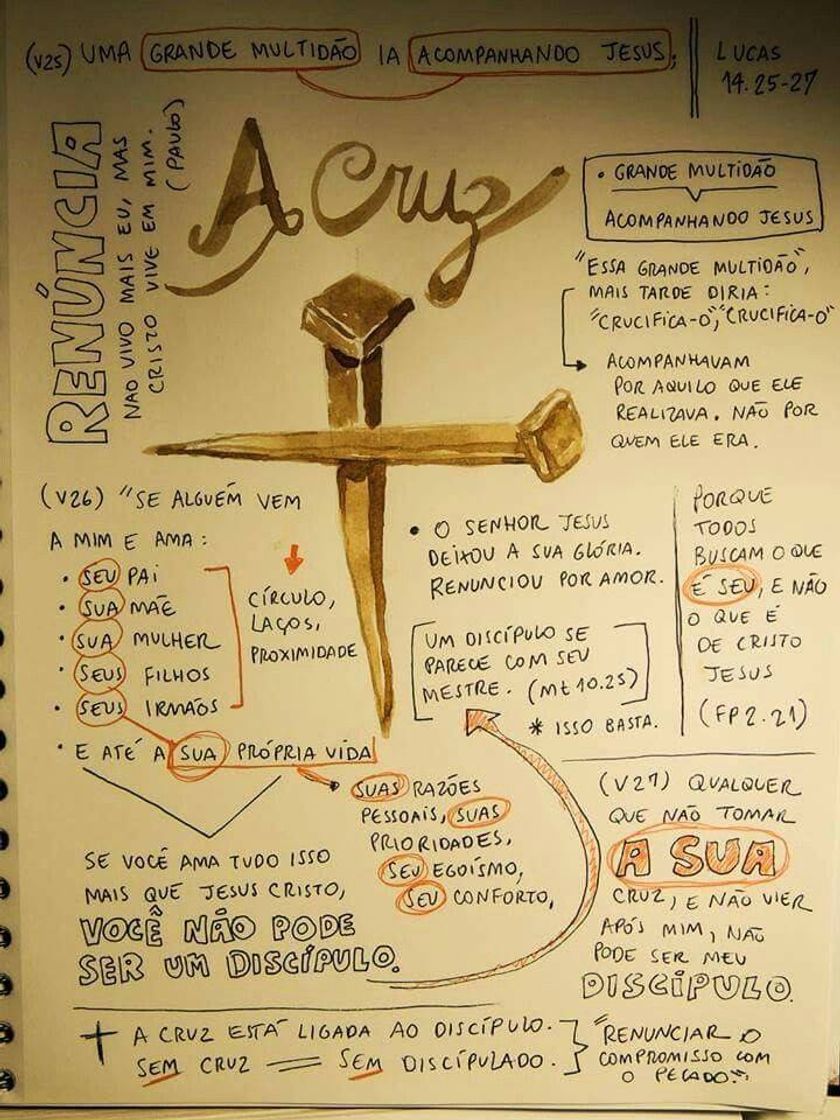 (V25) UMA GRANDE MULTIDÃO IA ACOMPANHANDO JESUS;
LUCAS
14.25-27
RENÚNCIA
NAO VIVO MAIS EU, MAS
CRISTO VIVE EM MIM.
(PAULO)
A Cruz
• GRANDE MULTIDÃO
ACOMPANHANDO JESUS
"ESSA GRANDE MULTIDÃO",
MAIS TARDE DIRIA:
"CRUCIFICA-O", "CRUCIFICA-O"
ACOMPANHAVAM
POR AQUILO QUE ELE
REALIZAVA. NÃO POR
QUEM ELE ERA.
(V26) "SE ALGUÉM VEM
A MIM E AMA:
• SEU PAI
• SUA MÃE
• SUA MULHER
• SEUS FILHOS
• SEUS IRMÃOS
• E ATÉ A SUA PRÓPRIA VIDA
CÍRCULO,
LAÇOS,
PROXIMIDADE
• O SENHOR JESUS
DEIXOU A SUA GLÓRIA.
RENUNCIOU POR AMOR.
UM DISCÍPULO SE
PARECE COM SEU
MESTRE. (Mt 10.25)
* ISSO BASTA.
PORQUE
TODOS
BUSCAM O QUE
É SEU, E NÃO
O QUE É
DE CRISTO
JESUS
(FP 2.21)
SUAS RAZÕES
PESSOAIS, SUAS
PRIORIDADES,
SEU EGOÍSMO,
SEU CONFORTO,
SE VOCÊ AMA TUDO ISSO
MAIS QUE JESUS CRISTO,
VOCÊ NÃO PODE
SER UM DISCÍPULO.
(V27) QUALQUER
QUE NÃO TOMAR
A SUA
CRUZ, E NÃO VIER
APÓS MIM, NÃO
PODE SER MEU
DISCÍPULO.
A CRUZ ESTÁ LIGADA AO DISCÍPULO.
SEM CRUZ = SEM DISCIPULADO.
"RENUNCIAR O
COMPROMISSO COM
O PECADO".